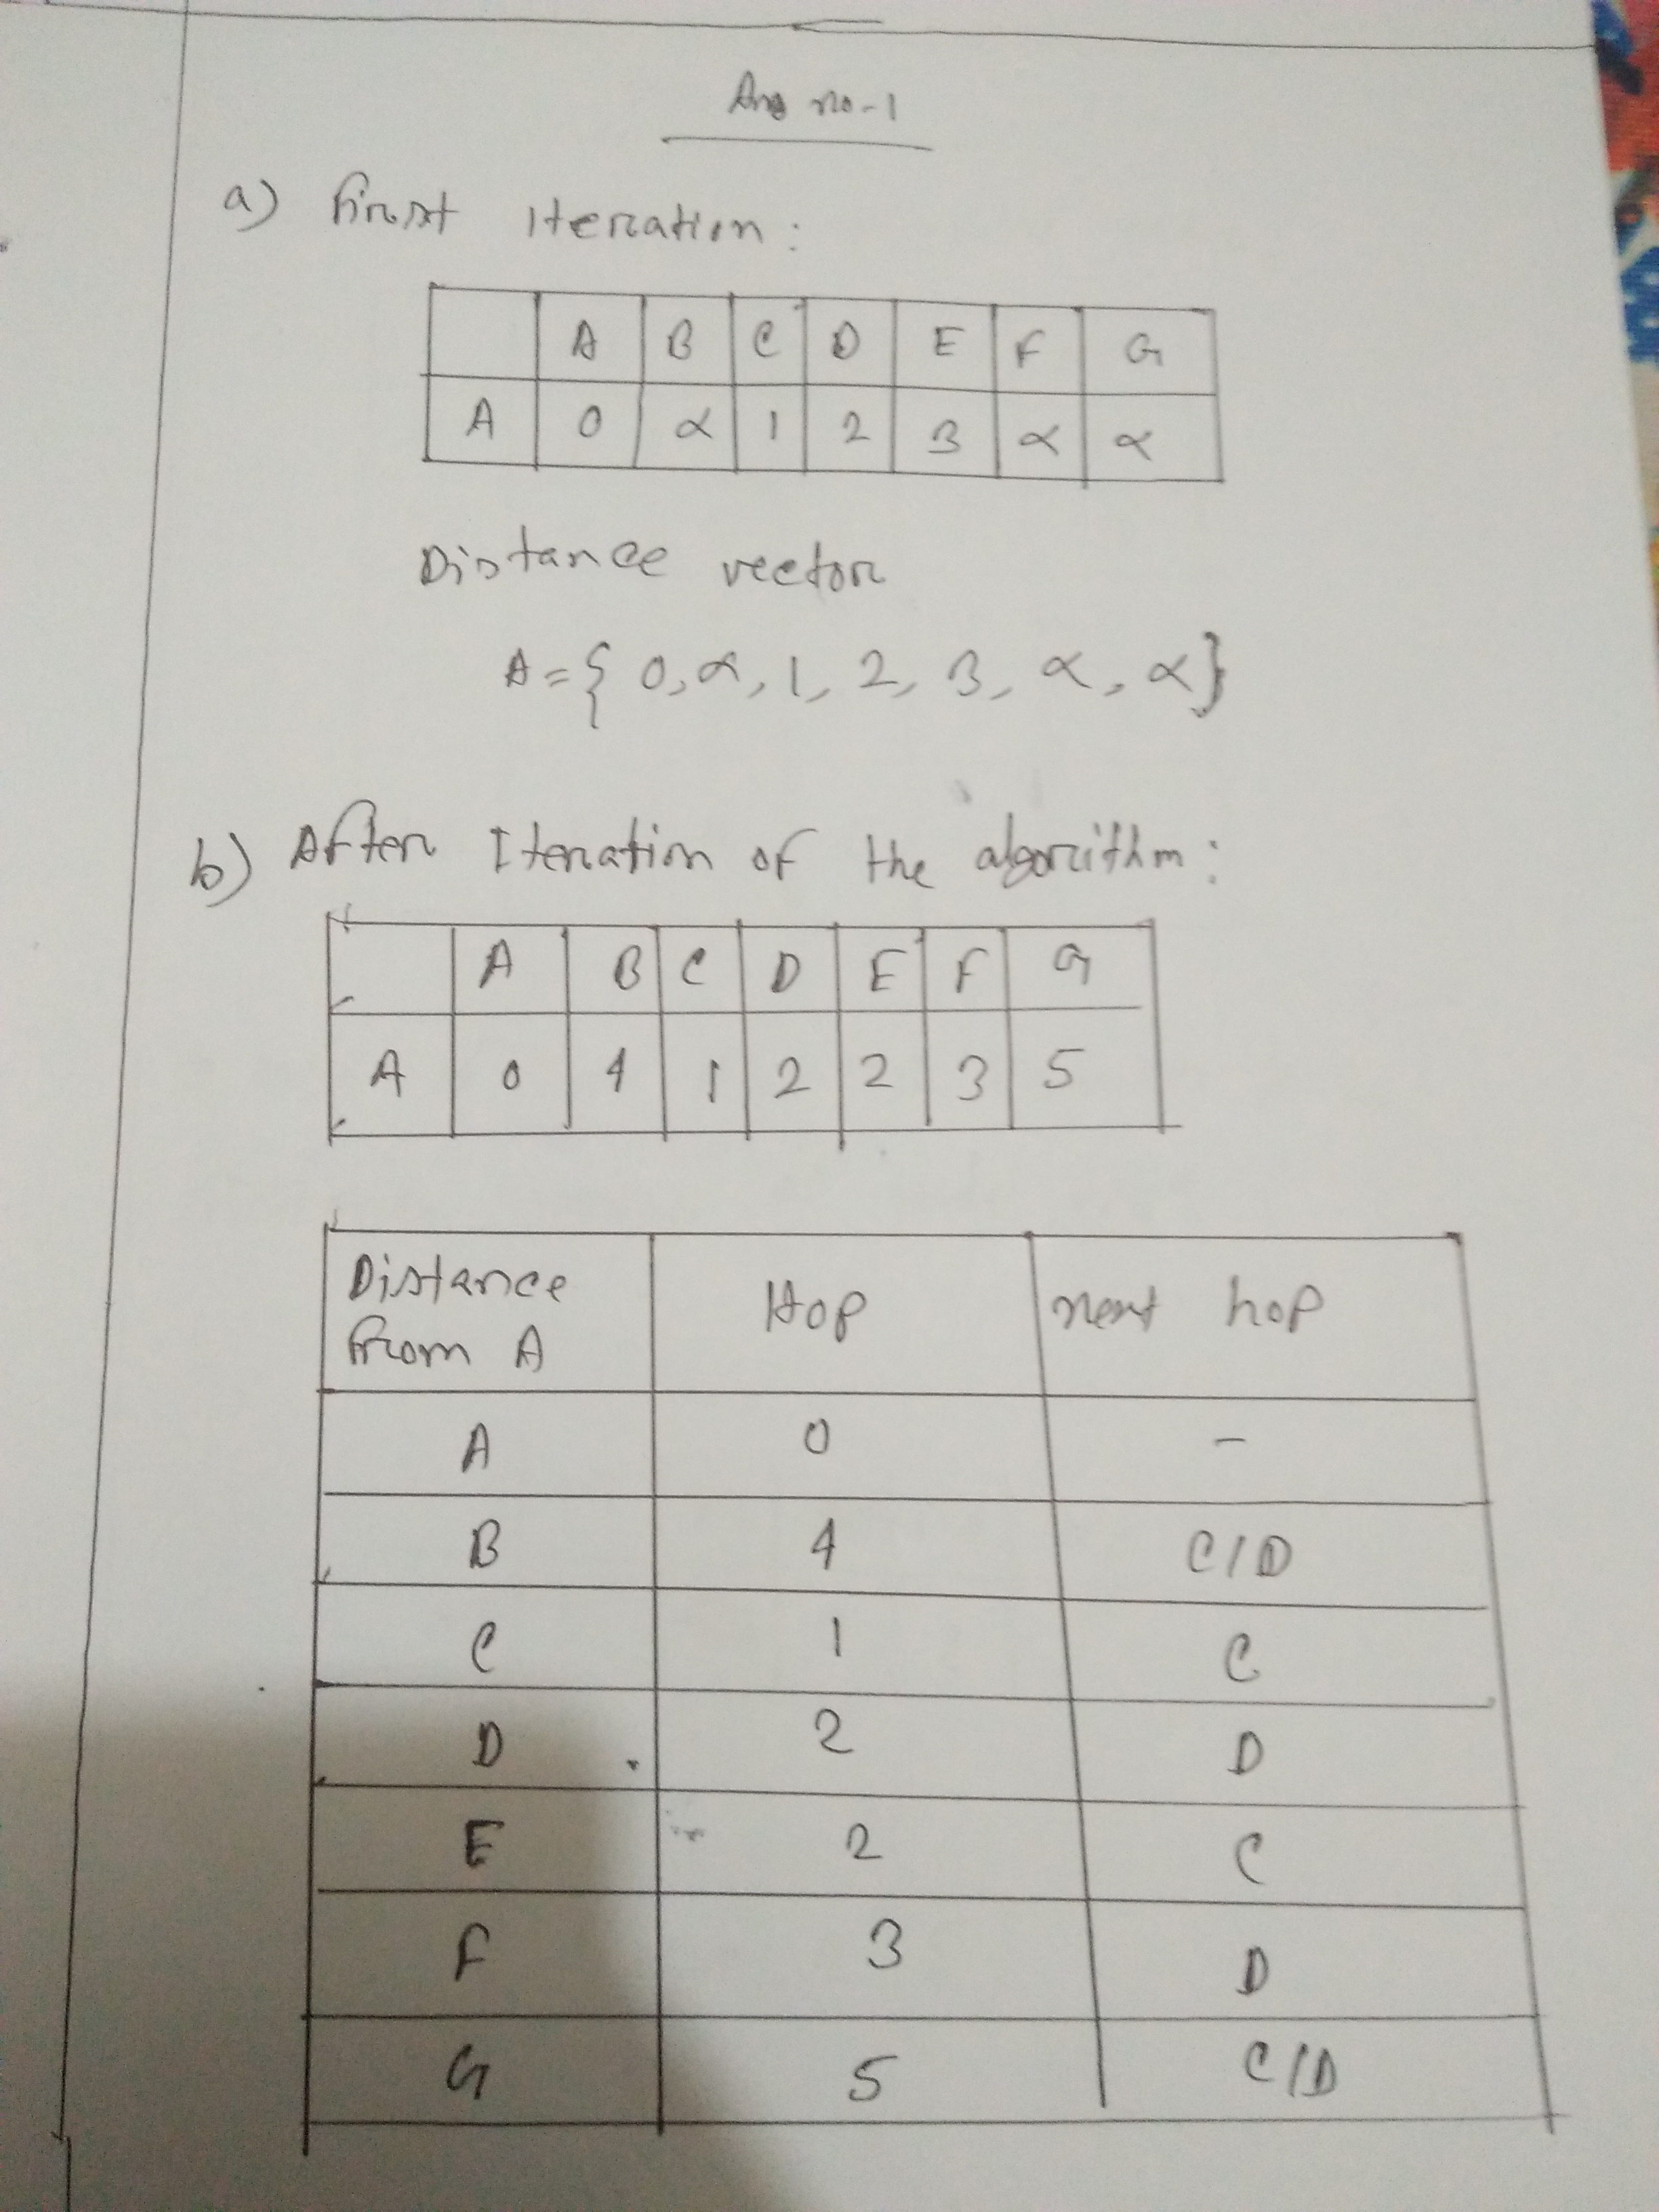 Ans no-1
a) First Iteration:
A B C D E F G
A 0 α 1 2 3 α α
Distance vector
A = { 0, α, 1, 2, 3, α, α}
b) After Iteration of the algorithm:
A B C D E F G
A 0 4 1 2 2 3 5
Distance from A Hop next hop
A 0 -
B 4 C/D
C 1 C
D 2 D
E 2 C
F 3 D
G 5 C/D